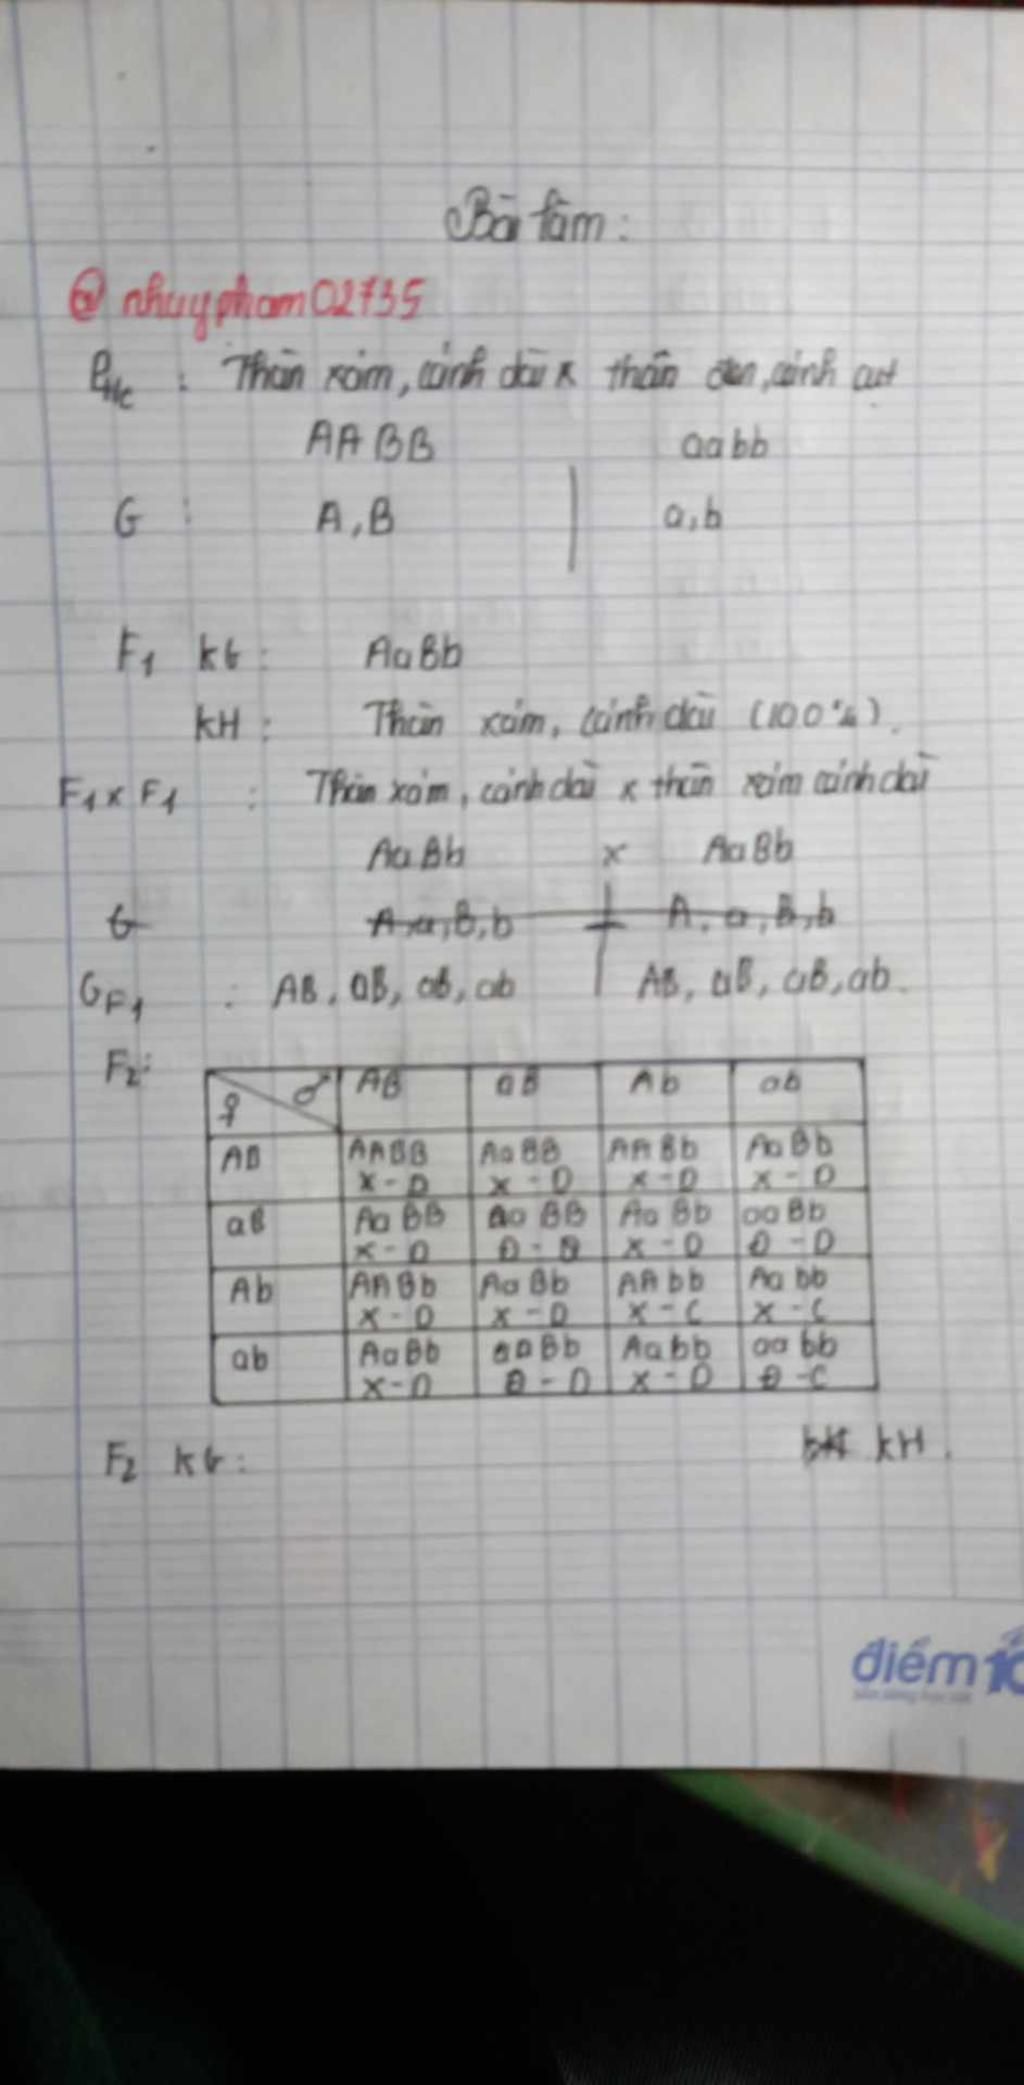 Bài làm:
@ nhuypham02735
Pt/c : Thân xám, cánh dài x thân đen, cánh cụt
AABB aabb
G : A,B | a,b
F1 KG : AaBb
KH : Thân xám, cánh dài (100%).
F1 x F1 : Thân xám, cánh dài x thân xám cánh dài
AaBb x AaBb
G A,a,B,b A, a, B,b
GF1 : AB, aB, aB, ab | AB, aB, aB, ab.
F2:
♀ ♂ AB aB Ab ab
AB AABB AaBB AABb AaBb
X-D X-D X-D X-D
aB AaBB aaBB AaBb aaBb
X-D Đ-D X-D Đ-D
Ab AABb AaBb AAbb Aabb
X-D X-D X-C X-C
ab AaBb aaBb Aabb aabb
X-D Đ-D X-D Đ-C
F2 KG: KH.
điểm 10